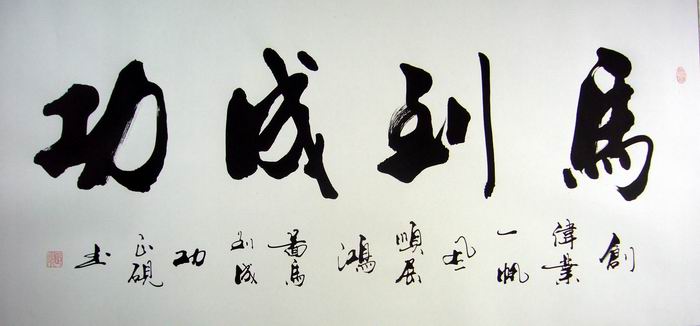 馬到成功
創偉業一帆風順展鴻圖馬到成功 正硯书